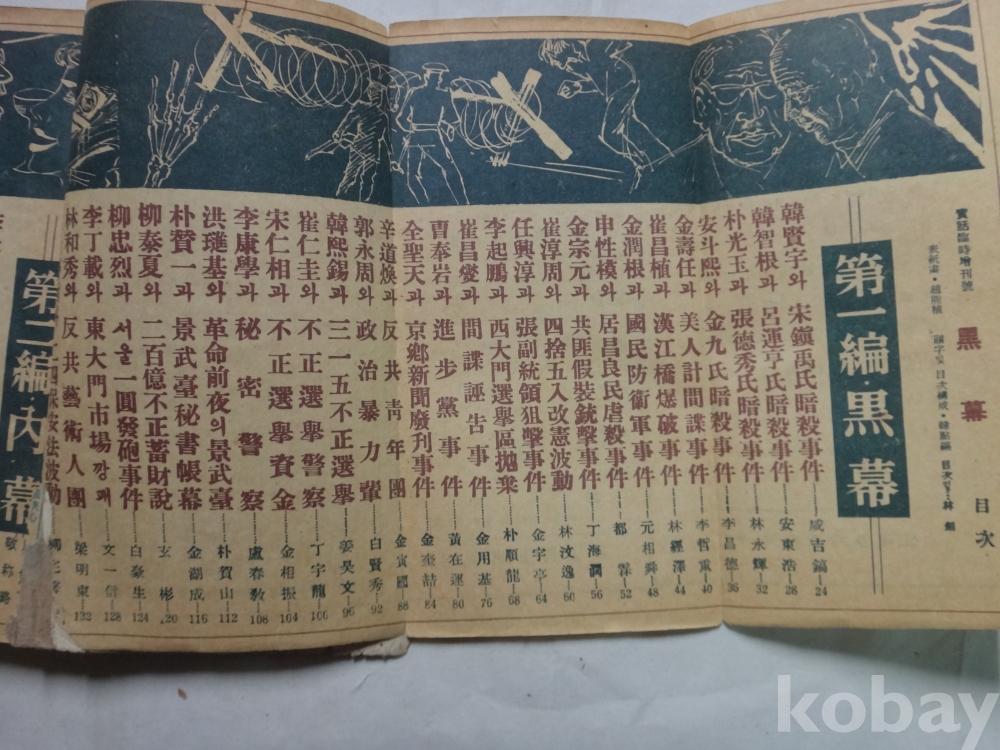 實話臨時增刊號
黑幕
目次
第一編・黑幕
韓賢宇와 宋鎭禹氏暗殺事件 咸吉鎬 24
韓智根과 呂運亨氏暗殺事件 安東浩 28
朴光玉과 張德秀氏暗殺事件 林永輝 32
安斗熙와 金九氏暗殺事件 李昌德 36
金壽任과 美人計間諜事件 李哲重 40
崔昌植과 漢江橋爆破事件 林經澤 44
金潤根과 國民防衛軍事件 元相舜 48
申性模와 居昌良民虐殺事件 都霖 52
金宗元과 共匪假裝銃擊事件 丁海潤 56
崔淳周와 四捨五入改憲波動 林汶逸 60
任興淳과 張副統領狙擊事件 金宇亭 64
李起鵬과 西大門選擧區拋棄 朴順龍 68
崔昌燮과 間諜誣告事件 金用基 76
曹奉岩과 進步黨事件 黃在運 80
全聖天과 京鄕新聞廢刊事件 金奎喆 84
辛道煥과 反共靑年團 金寅國 88
郭永周와 政治暴力輩 白賢秀 92
韓熙錫과 三一五不正選擧 姜吳文 96
崔仁圭와 不正選擧警察 丁宇龍 100
宋仁相과 不正選擧資金 金相振 104
李康學과 秘密警察 盧春敎 108
洪璡基와 革命前夜의景武臺 朴賀山 112
朴贊一과 景武臺秘書帳幕 金湖成 116
柳泰夏와 二百億不正蓄財說 玄彬 120
柳忠烈과 서울一圓發砲事件 白豪生 124
李丁載와 東大門市場깡패 文一信 128
林和秀와 反共藝術人團 梁明東 132
第二編・內幕
保安法波動
kobay